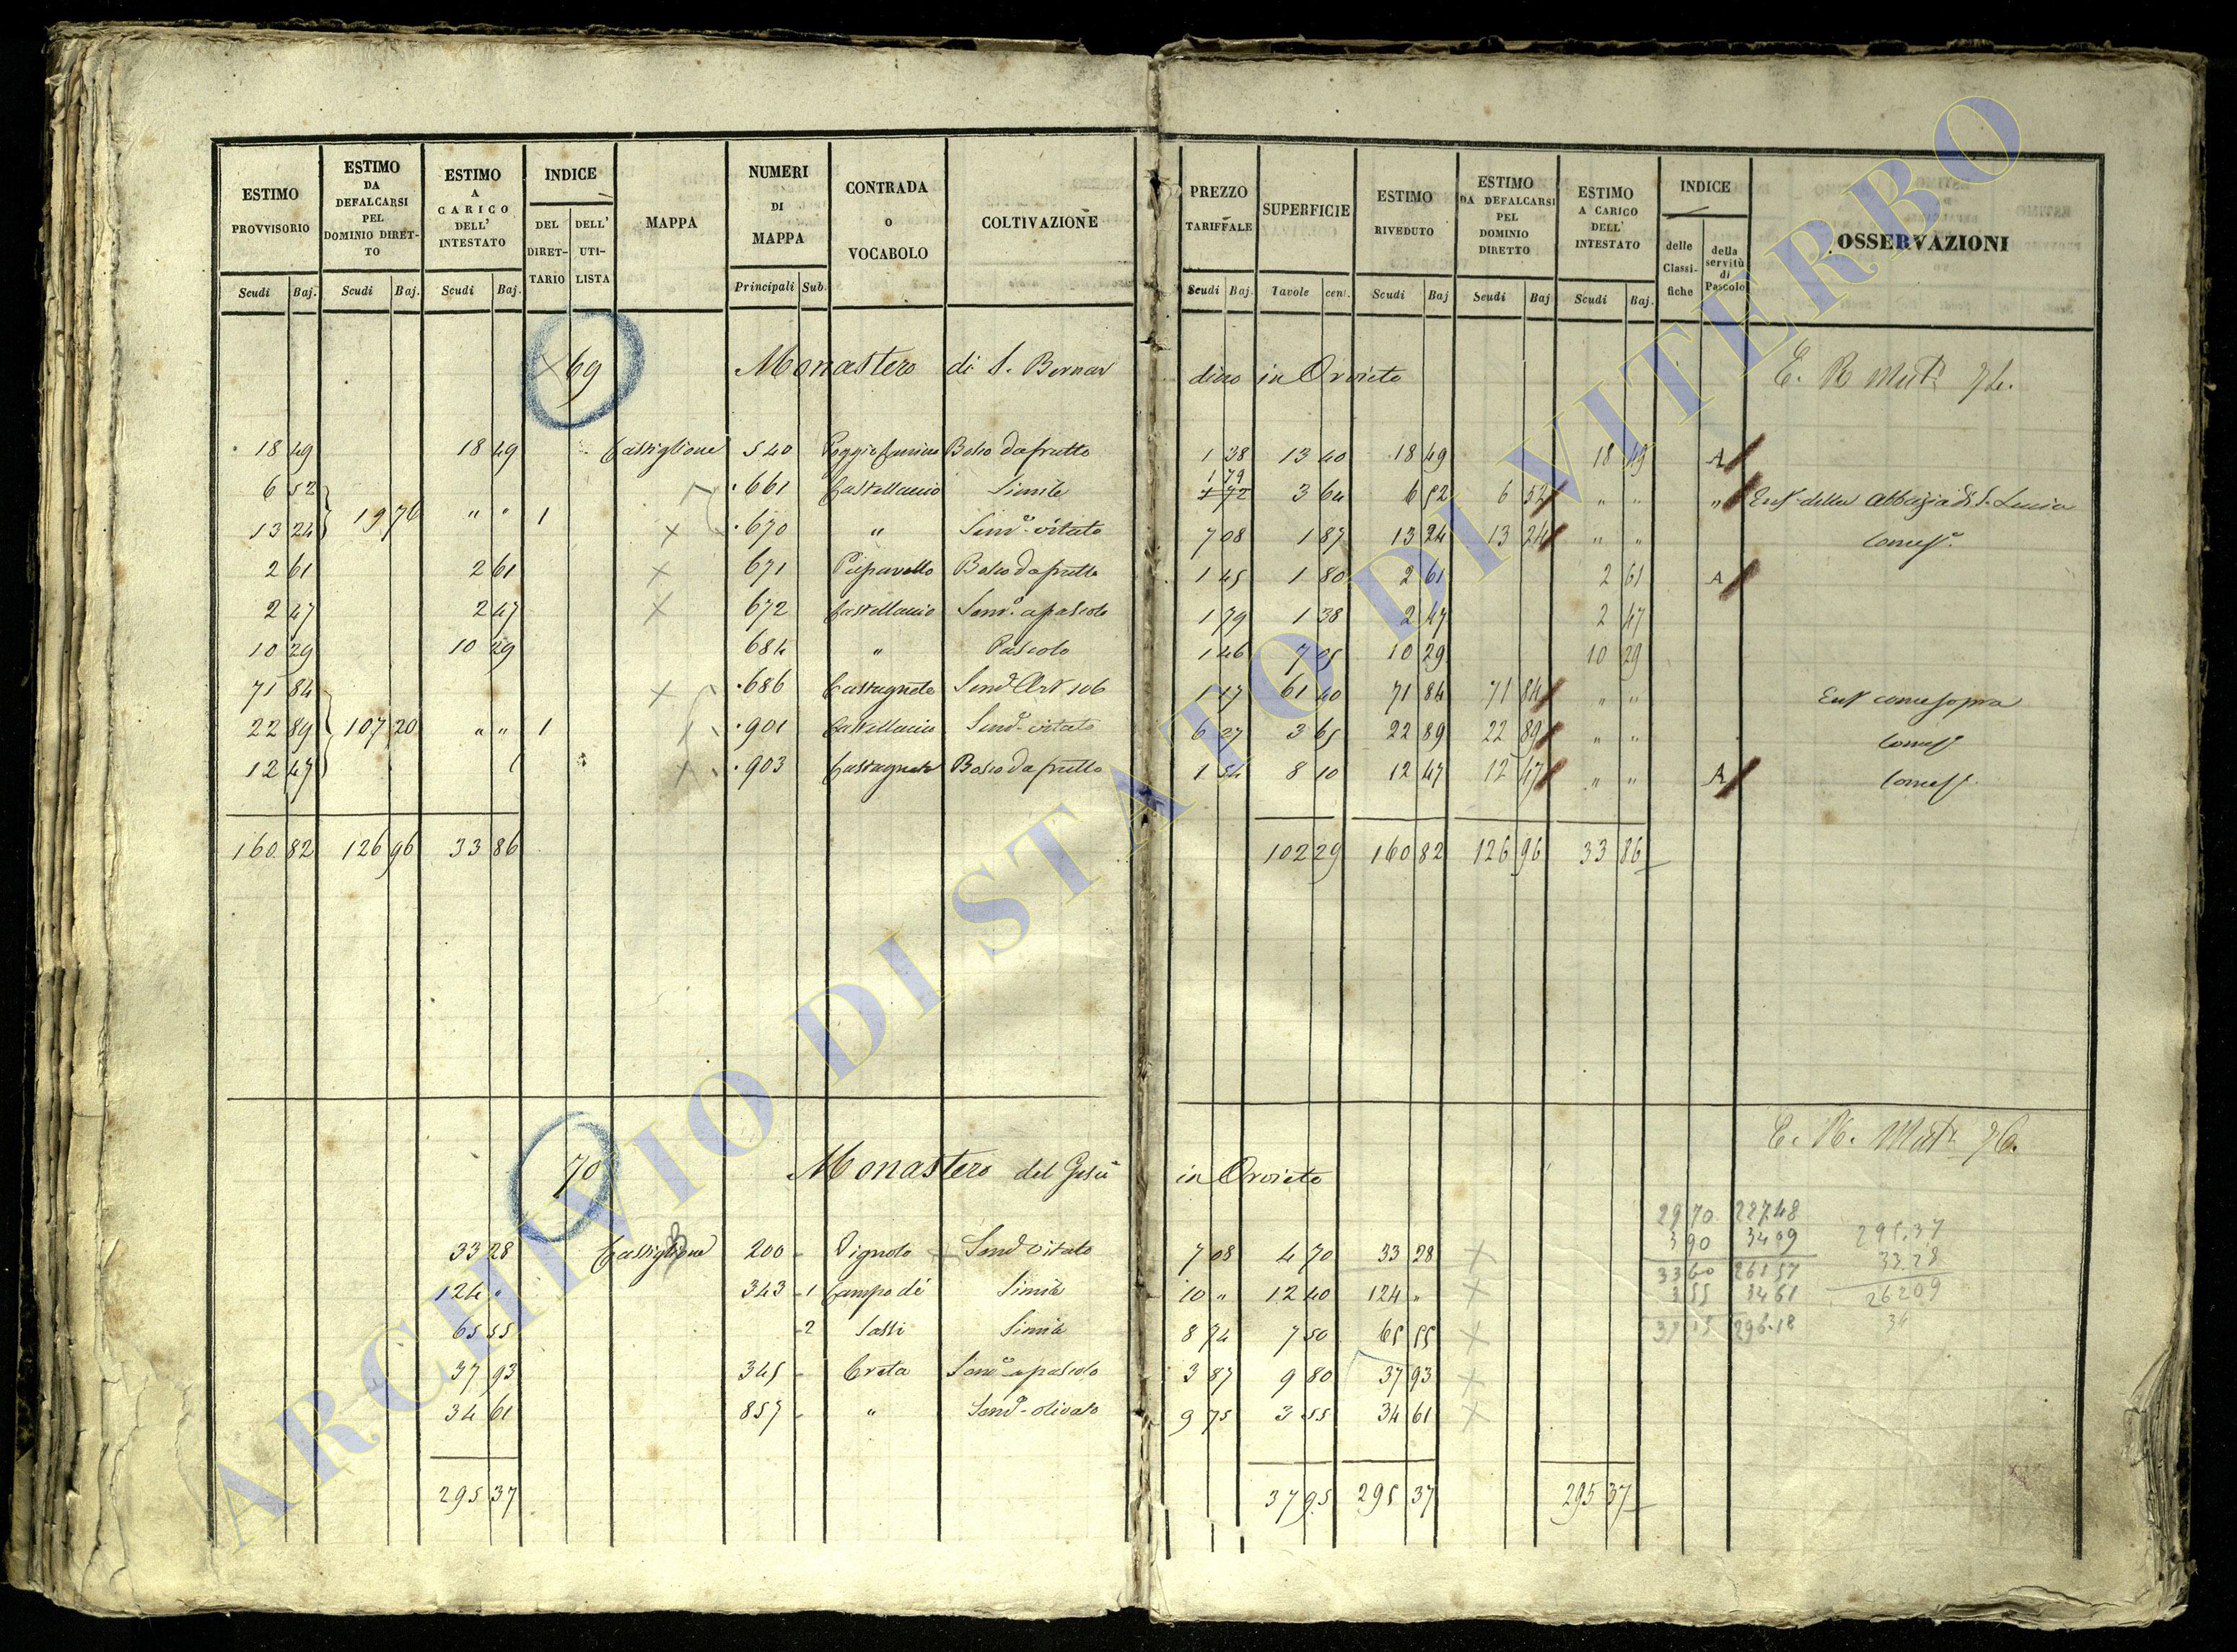 ESTIMO PROVVISORIO | ESTIMO DA DEFALCARSI PEL DOMINIO DIRETTO | ESTIMO A CARICO DELL' INTESTATO | INDICE DEL DIRETTARIO | DELL' UTILISTA | MAPPA | NUMERI DI MAPPA | CONTRADA o VOCABOLO | COLTIVAZIONE | PREZZO TARIFFALE | SUPERFICIE | ESTIMO RIVEDUTO | ESTIMO DA DEFALCARSI PEL DOMINIO DIRETTO | ESTIMO A CARICO DELL' INTESTATO | INDICE delle Classifiche | della servitù di Pascolo | OSSERVAZIONI
Scudi Baj. | Scudi Baj. | Scudi Baj. | Principali Sub. | Scudi Baj. | Tavole cent. | Scudi Baj | Scudi Baj | Scudi Baj.
69 Monastero di S. Bernardino in Orvieto E. R. Matr.
18 49 | 18 49 | Castiglione | 540 | Bosco da frutto | 1 38 | 13 40 | 18 49 | 18 49 | A
6 52 | 661 | Castellaccio | Simile | 1 79 | 1 72 | 3 64 | 6 52 | 6 52 | " " | " | Enf. della Abbazia di S. Lucia
13 24 | 19 76 | " " | 1 | 670 | " | Sem.o vitato | 7 08 | 1 87 | 13 24 | 13 24 | " " | Come s.a
2 61 | 2 61 | 671 | Bosco da frutto | 1 45 | 1 80 | 2 61 | 2 61 | A
2 47 | 2 47 | 672 | Castellaccio | Sem.o a pascolo | 1 79 | 1 38 | 2 47 | 2 47
10 29 | 10 29 | 684 | " | Pascolo | 1 46 | 7 05 | 10 29 | 10 29
71 84 | 686 | Castagneto | 1 17 | 61 40 | 71 84 | 71 84 | " " | Enf. come sopra
22 89 | 107 20 | " " | 1 | 901 | Castellaccio | Sem.o vitato | 6 27 | 3 65 | 22 89 | 22 89 | " " | Come s.
12 47 | 903 | Castagneto | Bosco da frutto | 1 54 | 8 10 | 12 47 | 12 47 | " " | A | Come s.
160 82 | 126 96 | 33 86 | 102 29 | 160 82 | 126 96 | 33 86
70 Monastero del Gesù in Orvieto E. R. Matr. 76.
33 28 | Castiglione | 200 | Vignolo | Sem.o vitato | 7 08 | 4 70 | 33 28
124 " | 343 1 | Campo de | Simile | 10 " | 12 40 | 124 "
65 55 | 2 | Sassi | Simile | 8 74 | 7 50 | 65 55
37 93 | 345 | Creta | Sem.o a pascolo | 3 87 | 9 80 | 37 93
34 61 | 857 | " | Sem.o olivato | 9 75 | 3 55 | 34 61
295 37 | 37 95 | 295 37 | 295 37
29 70 227.48
3 90 34 09 295.37
33 60 261 57 33 28
3 55 34 61 262 09
37 15 296.18 34
ARCHIVIO DI STATO DI VITERBO